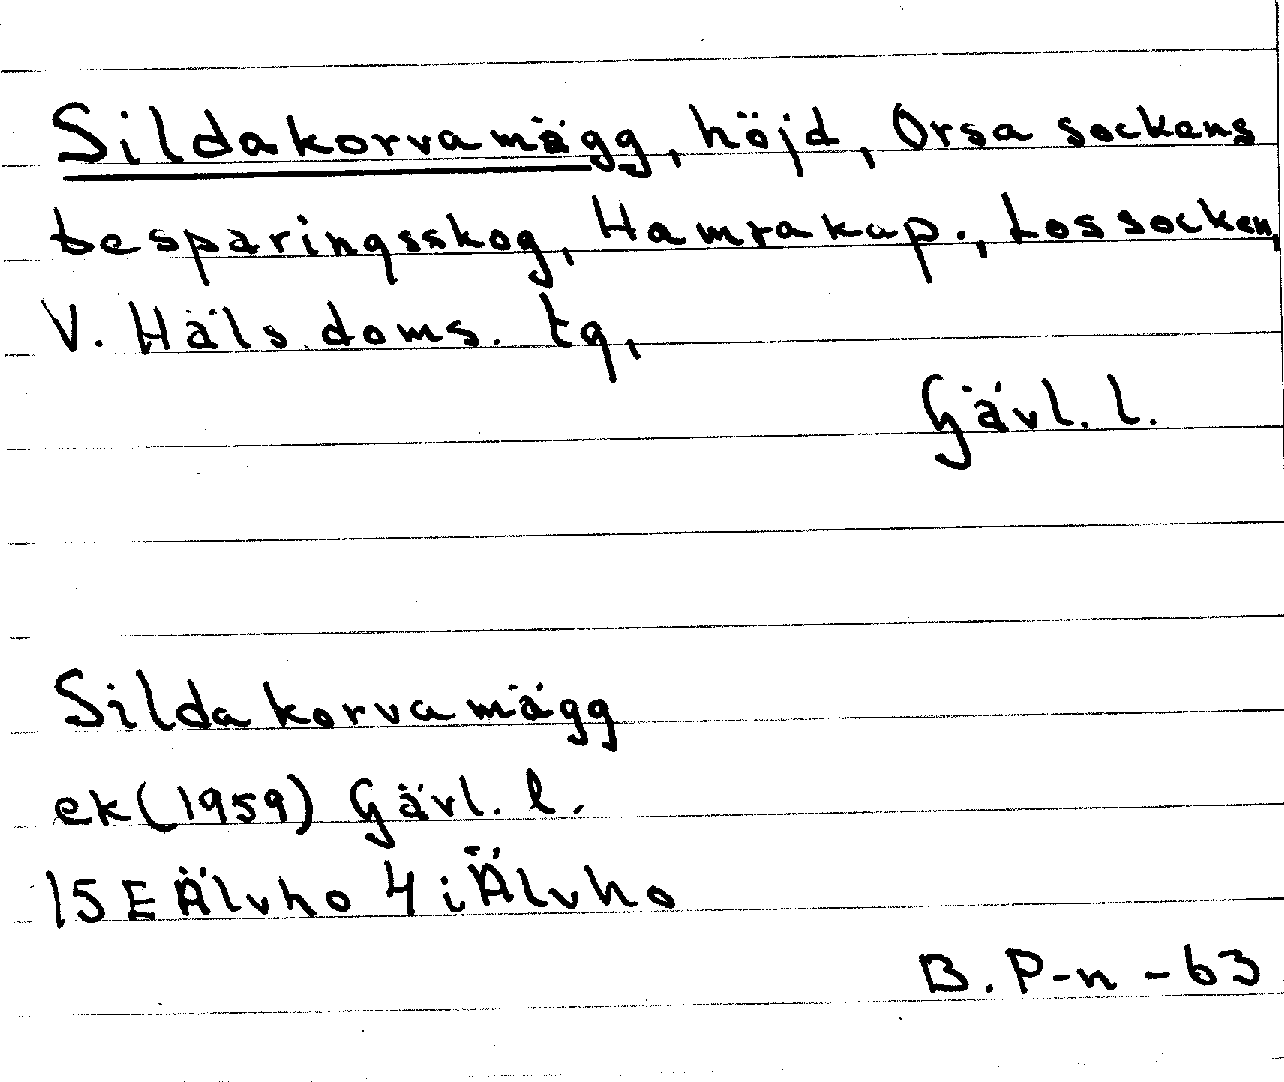 Sildakorvamägg, höjd, Orsa sockens
besparingsskog, Hamra kap., Los socken,
V. Häls. doms. tg,
Gävl. l.
Sildakorvamägg
ek (1959) Gävl. l.
15 E Älvho 4 i Älvho
B. P-n - 63